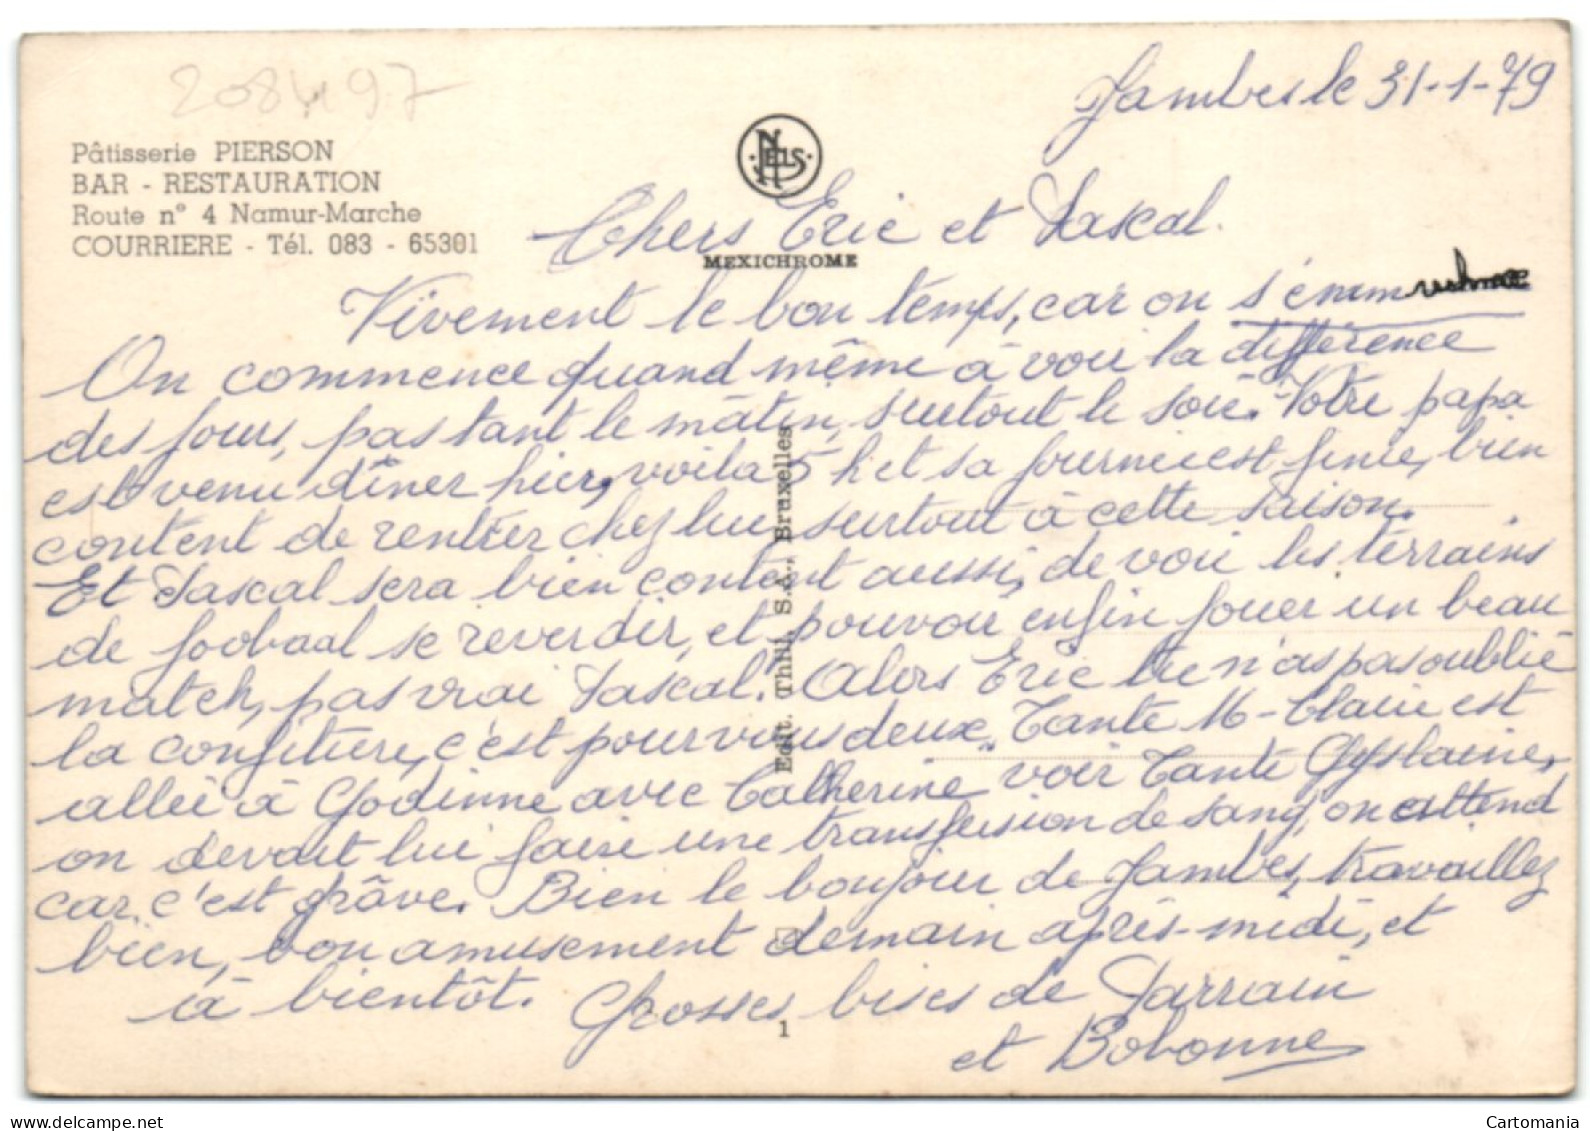 208497
Jambes le 31-1-79
Pâtisserie PIERSON
BAR - RESTAURATION
Route n° 4 Namur-Marche
COURRIERE - Tél. 083 - 65301
NELS
MEXICHROME
Chers Eric et Pascal.
Vivement le bon temps, car on s'emm
On commence quand même à voir la différence
des jours, pas tant le mâtin, surtout le soir. Votre papa
est venu dîner hier, voila 5 h et sa journeé est finie, bien
content de rentrer chez lui surtout à cette saison.
Et Pascal sera bien content aussi, de voir les terrains
de foobaal se reverdir, et pouvoir enfin jouer un beau
match, pas vrai Pascal. Alors Eric tu n'as pas oublié
la confiture, c'est pour vous deux. Tante M-Claire est
alleé à Godinne avec Catherine voir Tante Ghyslaine,
on devait lui faire une transfusion de sang, on attend
car c'est grâve. Bien le bonjour de Jambes, travaillez
bien, bon amusement demain après-midi, et
à bientôt. Grosses bises de Parrain
et Bobonne
Edit. Thill, S.A., Bruxelles
1
Cartomania
www.delcampe.net